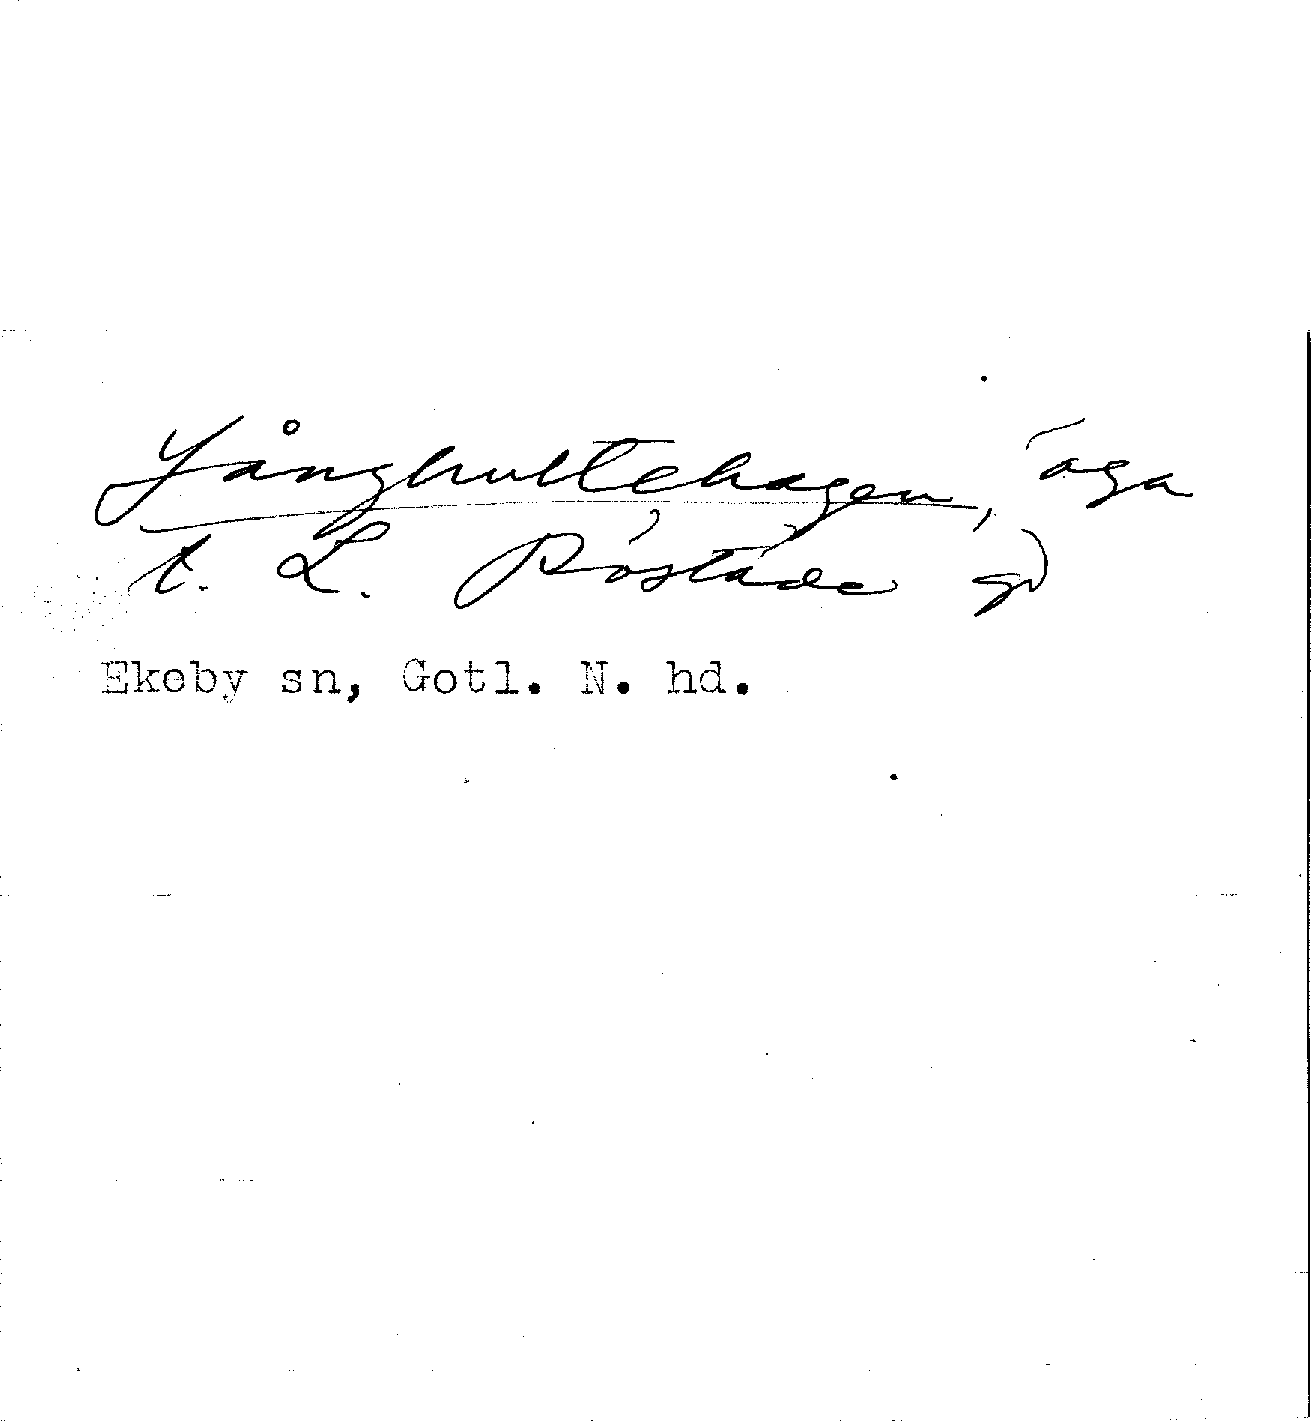 Långhultehagen, äga
t. L. Röstäde gd
Ekeby sn, Gotl. N. hd.